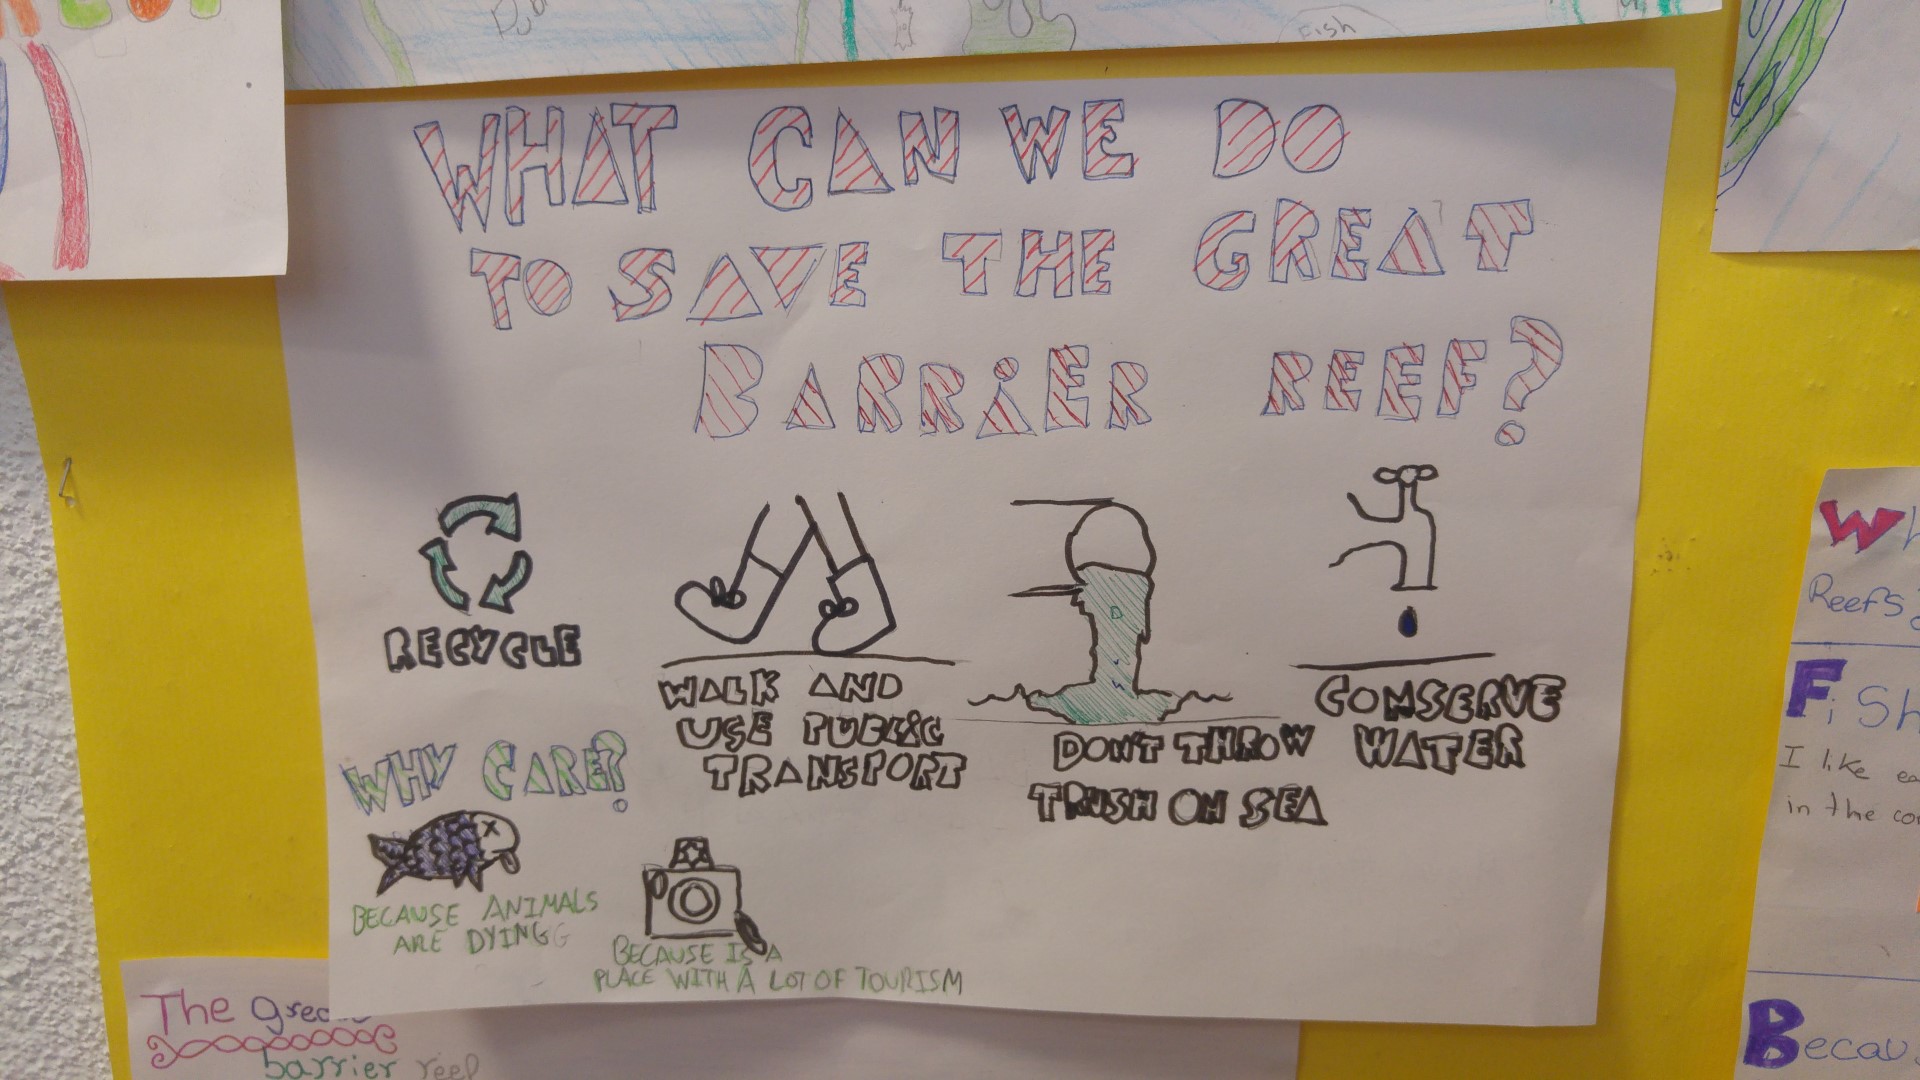 Fish
WHAT CAN WE DO
TO SAVE THE GREAT
BARRiER REEF?
RECYCLE
WALK AND
USE PUBLiC
TRANSPORT
DON'T THROW
TRUSH ON SEA
COMSERVE
WATER
WHY CARE?
BECAUSE ANIMALS
ARE DYING
BECAUSE IS A
PLACE WITH A LOT OF TOURISM
The grea
barrier reef
Reefs
Fish
I like
in the
Becau